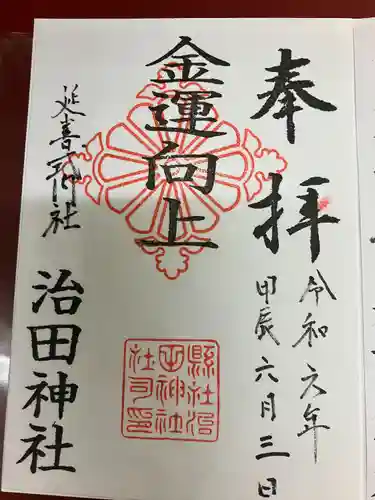 奉拝
令和六年
甲辰六月三日
金運向上
延喜式内社
治田神社
縣社治
田神社
社司印